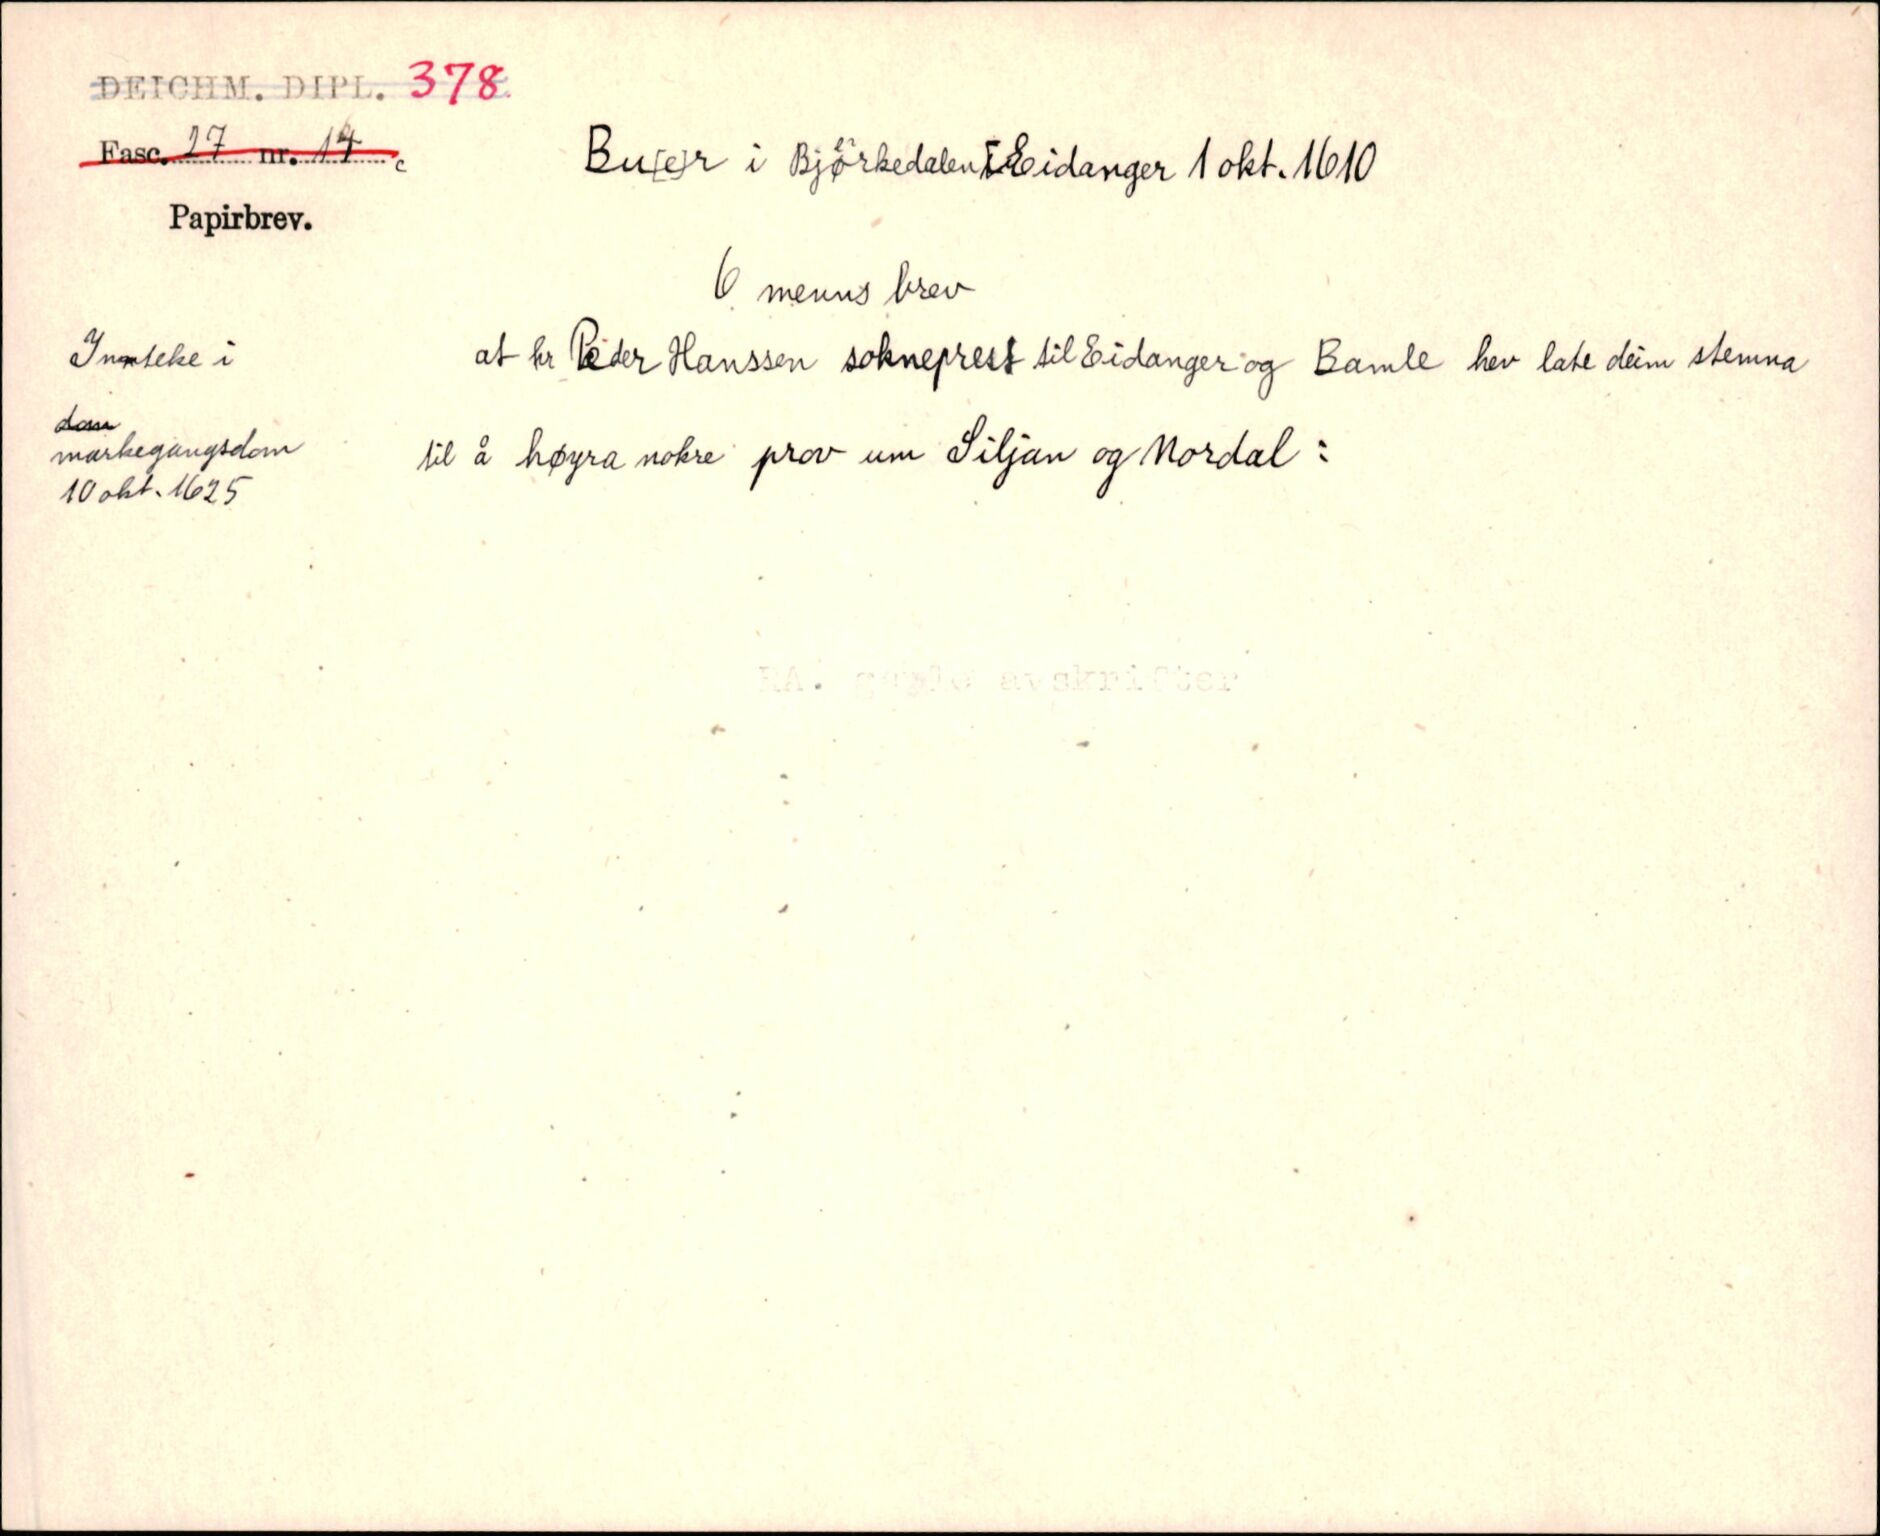 DEICHM. DIPL. 378
Fasc. 27 nr. 14 c
Papirbrev.
Bu[e]r i Bjørkedalen i Eidanger 1 okt. 1610
6 menns brev
at hr Peder Hanssen sokneprest til Eidanger og Bamle hev late deim stemna
til å høyra nokre prov um Siljan og Nordal:
Innteke i
dom
markegangsdom
10 okt. 1625
RA. gamle avskrifter